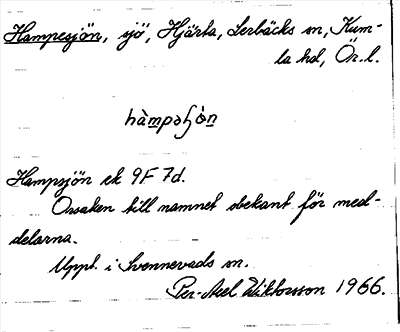 Hampesjön, sjö, Hjärta, Lerbäcks sn, Kum-
la hd, Ör. l.
hàmpəʃön
Hampsjön ek 9F 7d.
Orsaken till namnet obekant för med-
delarna.
Uppt. i Svennevads sn.
Per-Axel Wiktorsson 1966.